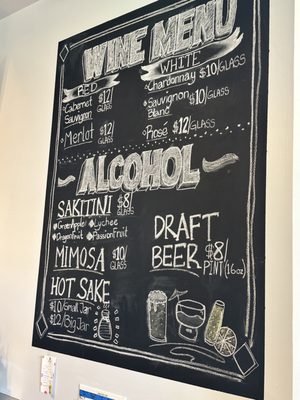 WINE MENU
RED
Cabernet Sauvignon $12/GLASS
Merlot $12/GLASS
WHITE
Chardonnay $10/GLASS
Sauvignon Blanc $10/GLASS
Rosé $12/GLASS
ALCOHOL
SAKITINI $8/GLASS
GreenApple Lychee
Dragonfruit PassionFruit
MIMOSA $10/GLASS
HOT SAKE
$10/Small Jar
$12/Big Jar
DRAFT
BEER $8/PINT (16oz)